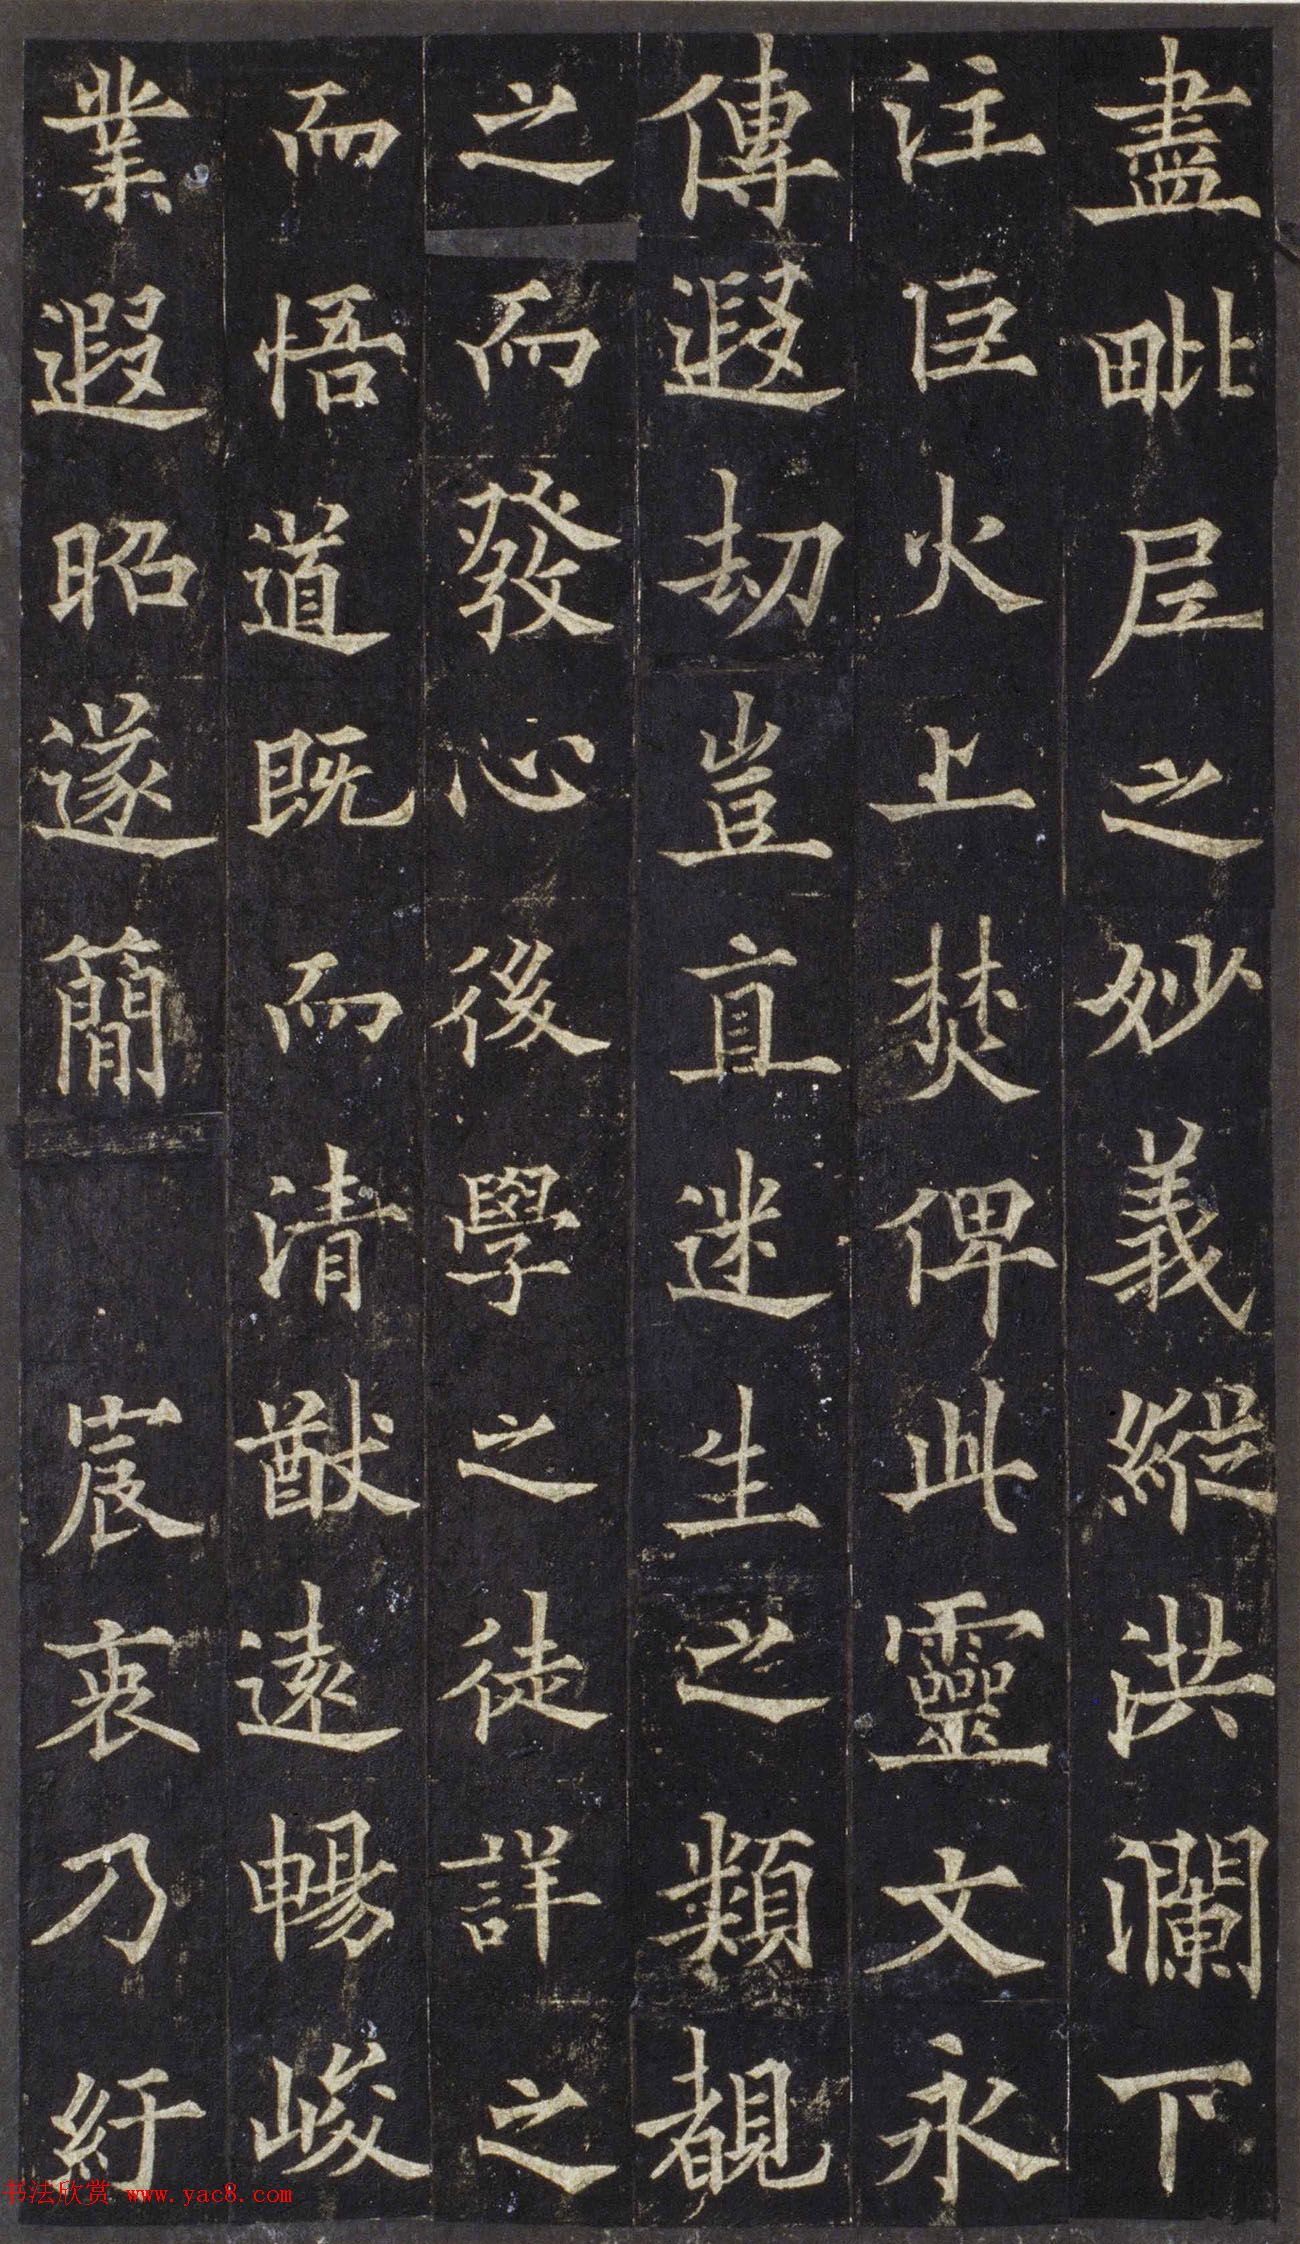 盡毗尼之妙義縱洪瀾下
注巨火上焚俾此靈文永
傳遐劫豈直迷生之類覩
之而發心後學之徒詳之
而悟道既而清猷遠暢峻
業遐昭遂簡 宸衷乃紆
书法欣赏 www.yac8.com